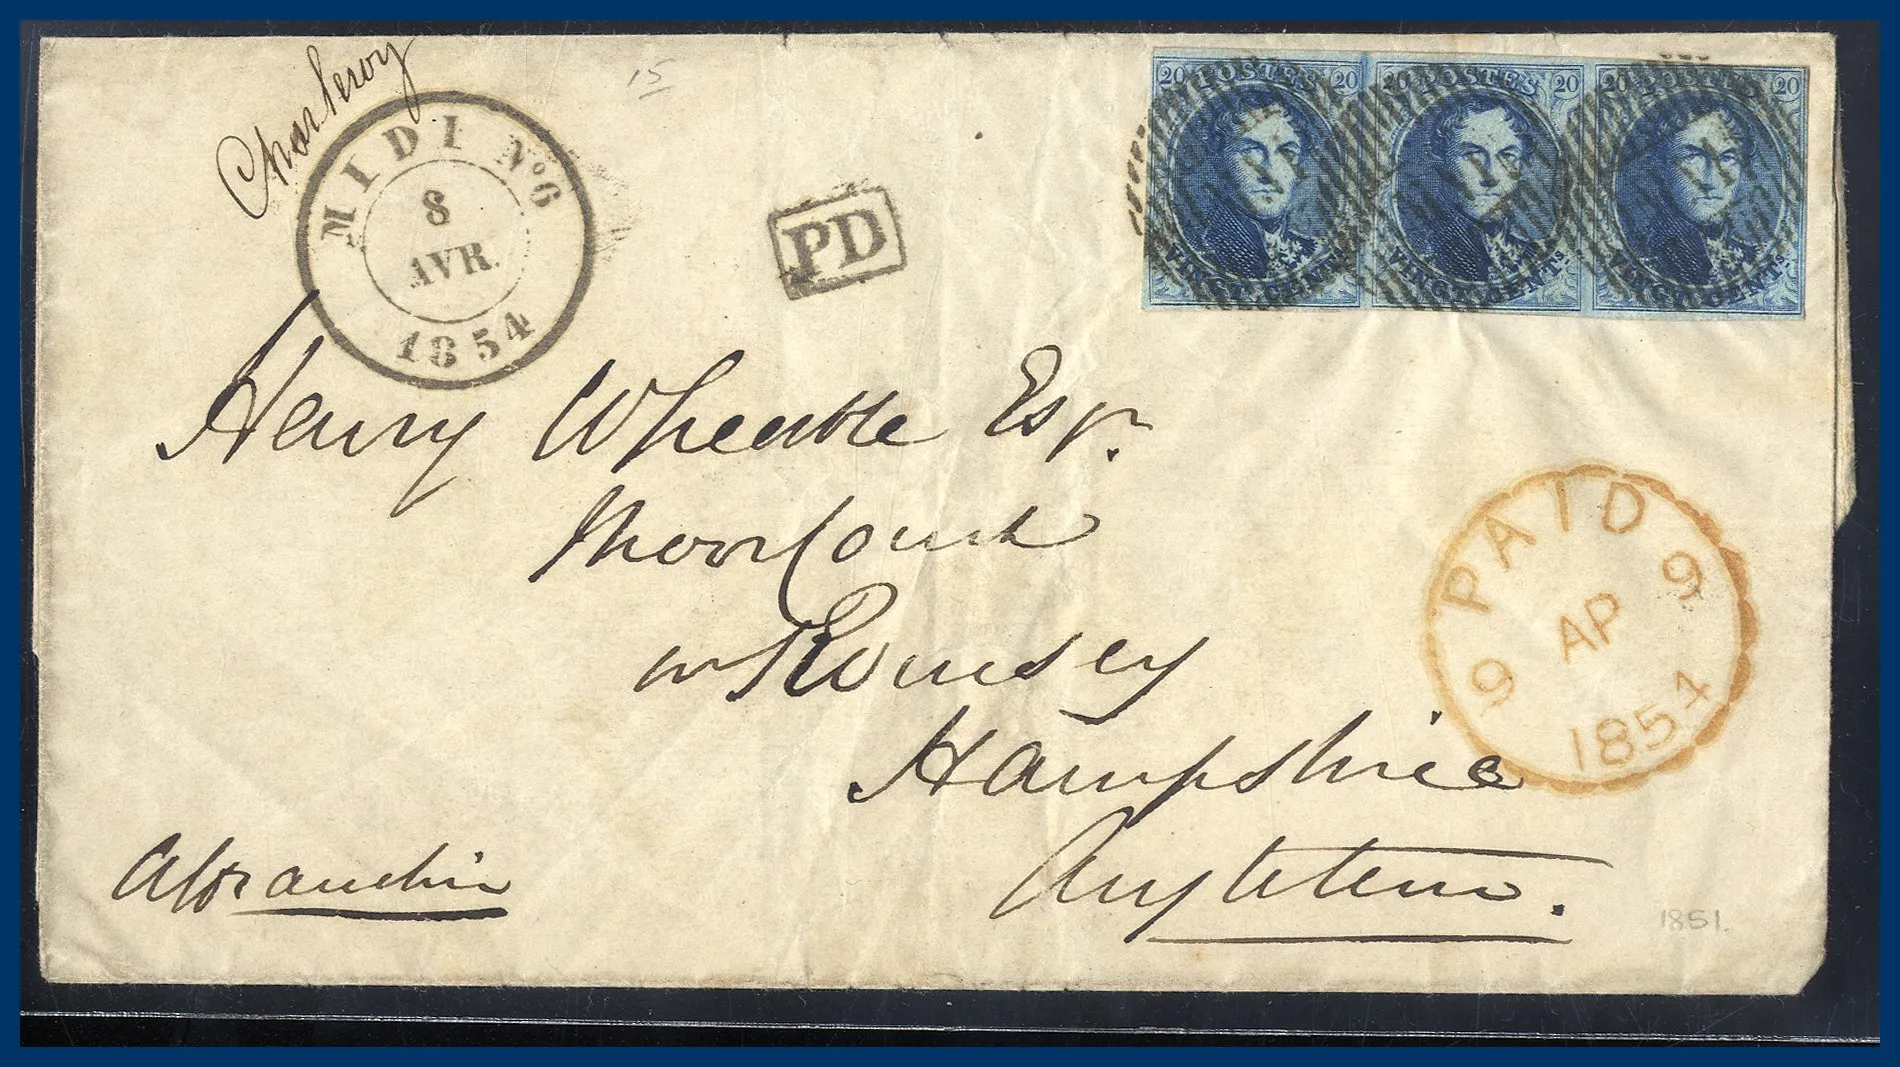 Charleroy
15
MIDI No 6
8
AVR.
1854
PD
20 POSTES 20
VINGT CENTs.
20 POSTES 20
VINGT CENTs.
20 POSTES 20
VINGT CENTs.
Henry Wheable Esqr.
Moorcourt
nr Romsey
Hampshire
Angleterre.
PAID
9 AP 9
1854
1851.